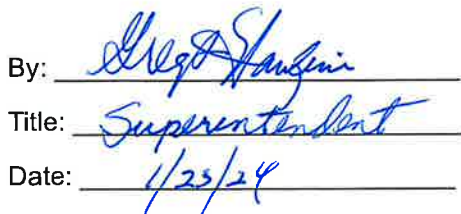 By: Greg
Title: Superintendent
Date: 1/23/24